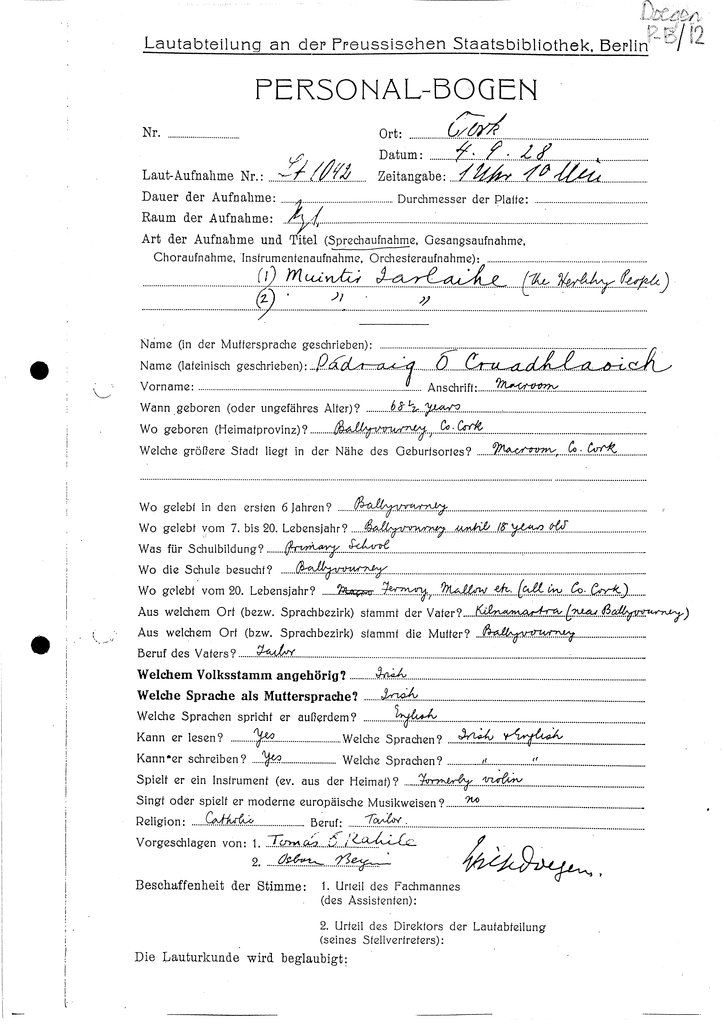 Doegen
Lautabteilung an der Preussischen Staatsbibliothek, Berlin
PERSONAL-BOGEN
Nr. Ort: Cork
Datum: 4. 9. 28
Laut-Aufnahme Nr.: LA 1042 Zeitangabe: 1 Uhr 10 Min
Dauer der Aufnahme: Durchmesser der Platte:
Raum der Aufnahme:
Art der Aufnahme und Titel (Sprechaufnahme, Gesangsaufnahme,
Choraufnahme, Instrumentenaufnahme, Orchesteraufnahme):
(1) Muintir Iarlaithe (the Herlihy People)
(2) " " "
Name (in der Muttersprache geschrieben):
Name (lateinisch geschrieben): Pádraig Ó Cruadhlaoich
Vorname: Anschrift: Macroom
Wann geboren (oder ungefähres Alter)? 68½ years
Wo geboren (Heimatprovinz)? Ballyvourney, Co. Cork
Welche größere Stadt liegt in der Nähe des Geburtsortes? Macroom, Co. Cork
Wo gelebt in den ersten 6 Jahren? Ballyvourney
Wo gelebt vom 7. bis 20. Lebensjahr? Ballyvourney until 18 years old
Was für Schulbildung? Primary School
Wo die Schule besucht? Ballyvourney
Wo gelebt vom 20. Lebensjahr? Macro Fermoy, Mallow etc. (all in Co. Cork)
Aus welchem Ort (bezw. Sprachbezirk) stammt der Vater? Kilnamartra (near Ballyvourney)
Aus welchem Ort (bezw. Sprachbezirk) stammt die Mutter? Ballyvourney
Beruf des Vaters? Tailor
Welchem Volksstamm angehörig? Irish
Welche Sprache als Muttersprache? Irish
Welche Sprachen spricht er außerdem? English
Kann er lesen? Yes Welche Sprachen? Irish & English
Kann er schreiben? Yes Welche Sprachen? " "
Spielt er ein Instrument (ev. aus der Heimat)? Formerly violin
Singt oder spielt er moderne europäische Musikweisen? no
Religion: Catholic Beruf: Tailor.
Vorgeschlagen von: 1. Tomás Ó Rahile
2. Osborn Bergin
Beschaffenheit der Stimme: 1. Urteil des Fachmannes
(des Assistenten):
2. Urteil des Direktors der Lautabteilung
(seines Stellvertreters):
Die Lauturkunde wird beglaubigt: